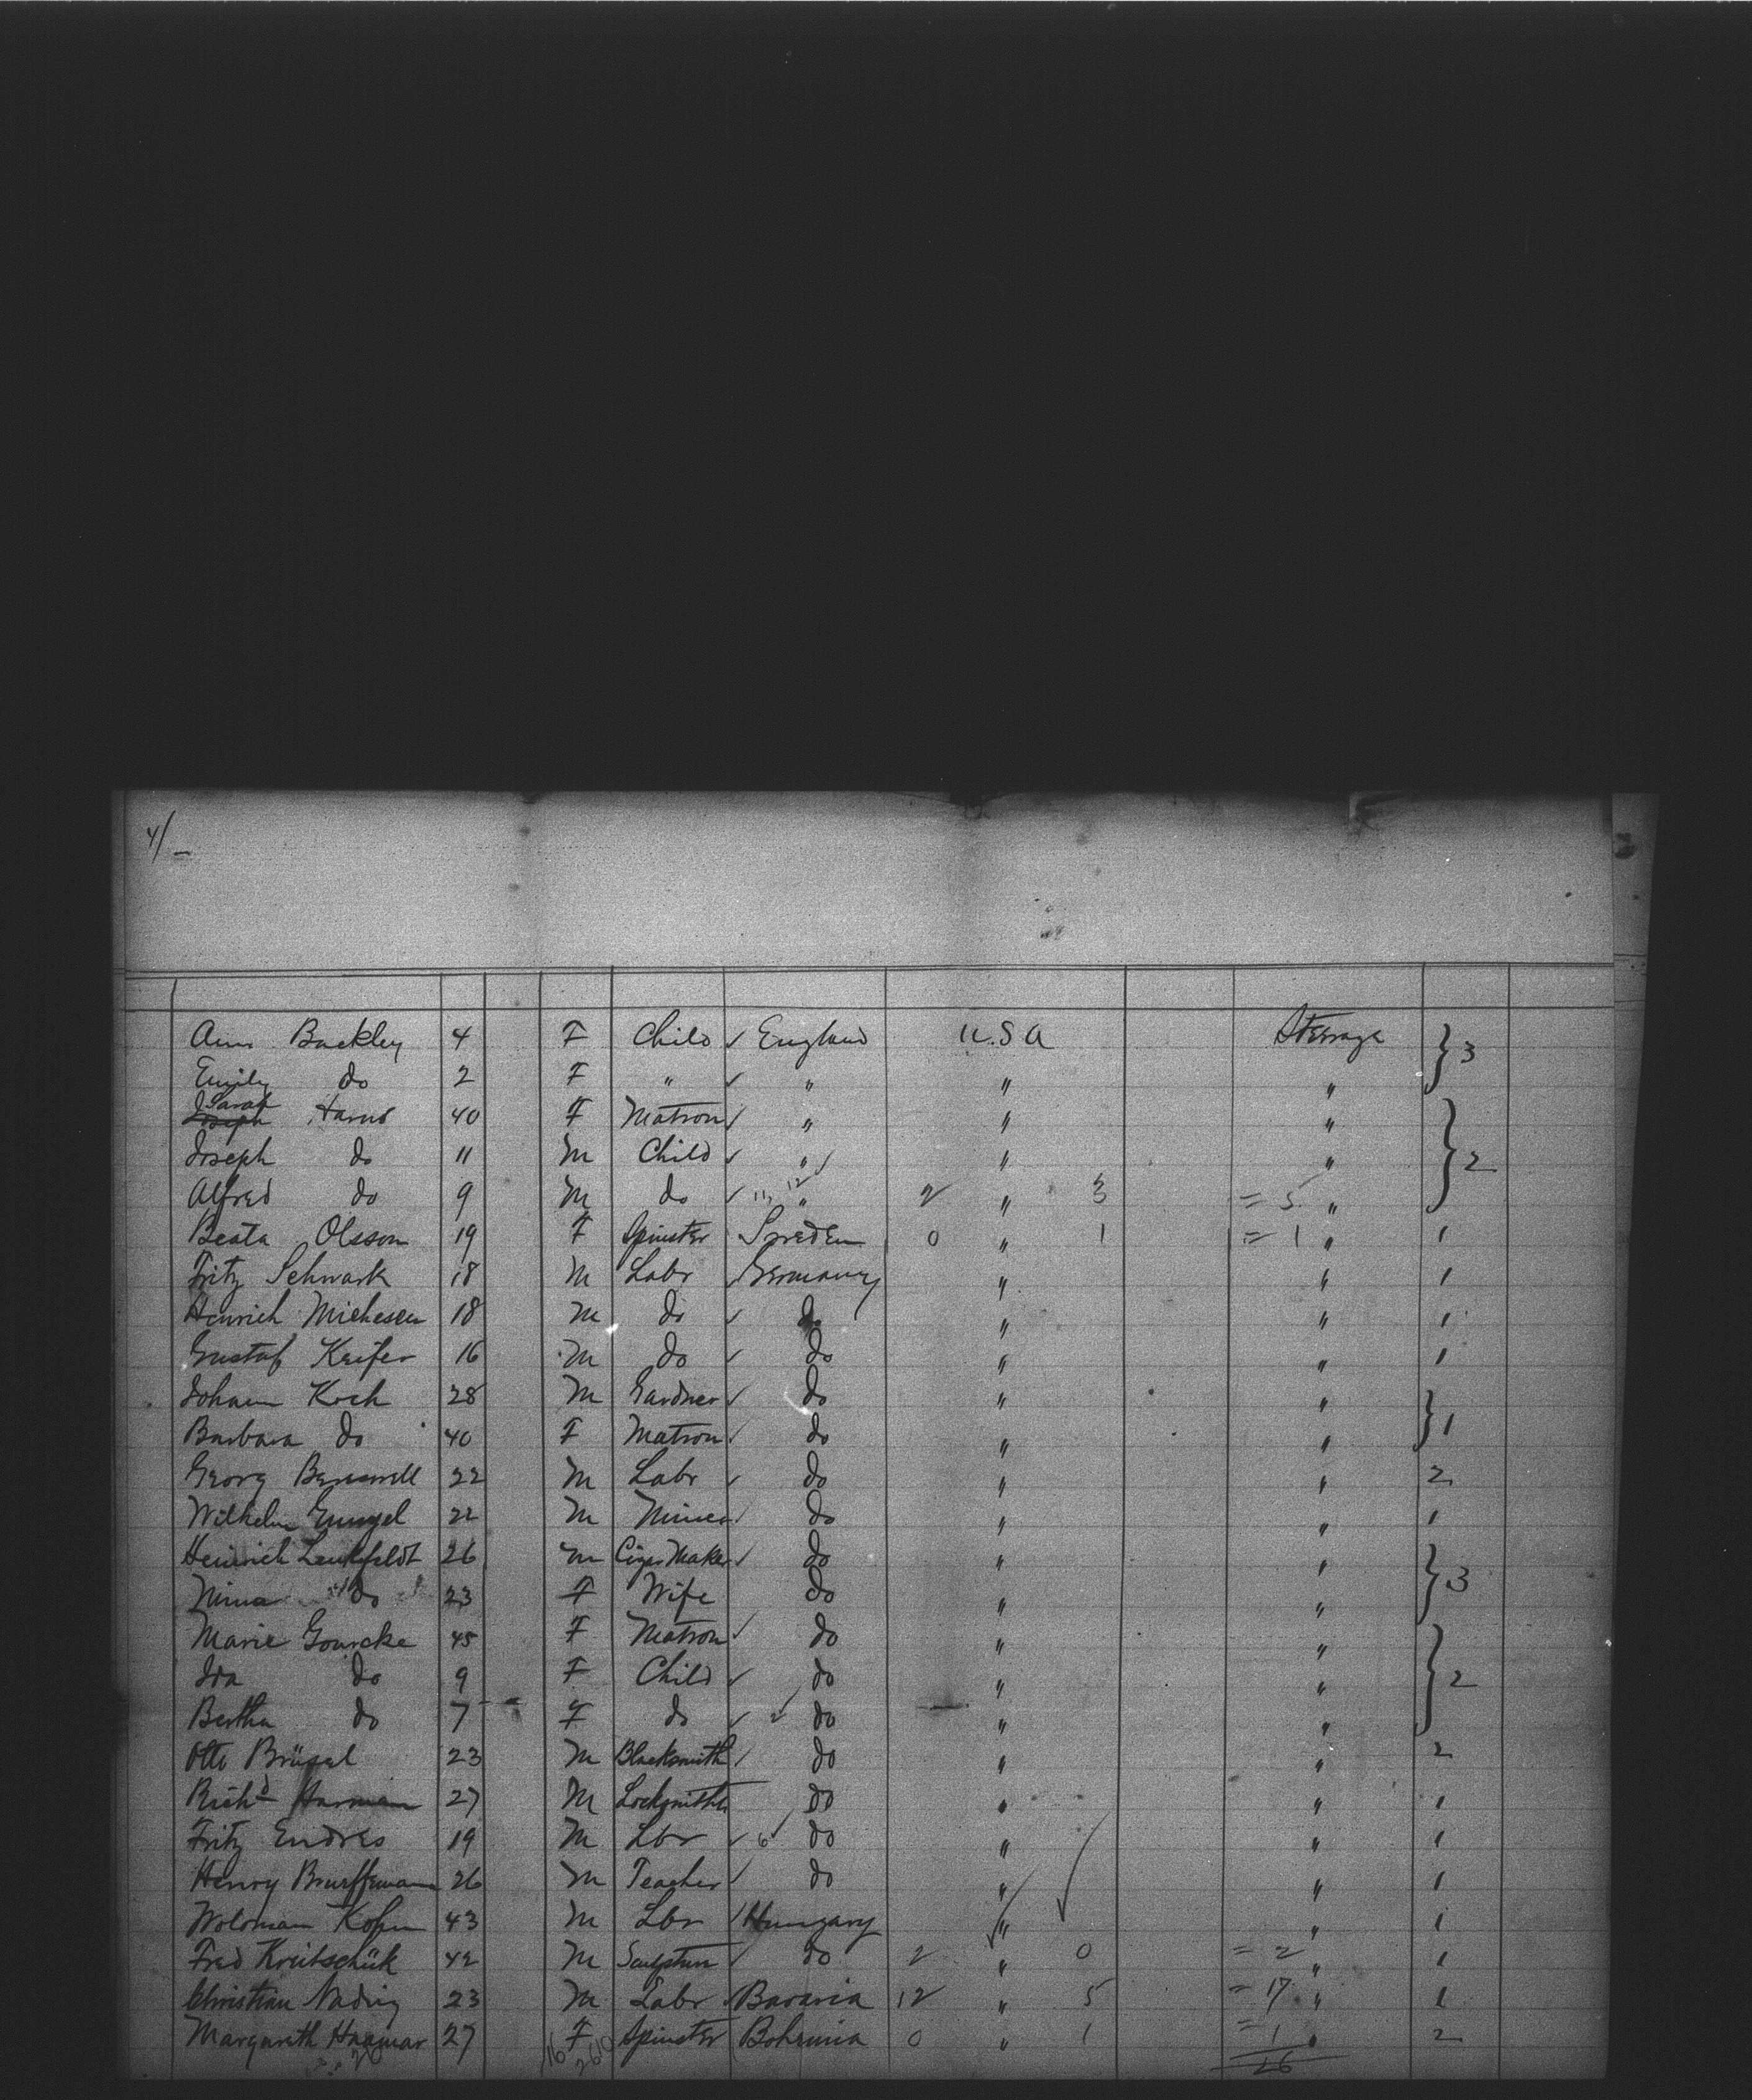 4/ _
Ann Buckley 4 F Child ✓ England U.S.A Steerage } 3
Emily do 2 F " ✓ " " "
Sarah
Joseph Harris 40 F Matron ✓ " " " } 2
Joseph do 11 M Child ✓ " ✓ " "
Alfred do 9 M do ✓ 11, 12 " 2 " 3 = 5 "
Beata Olsson 19 F Spinster Sweden 0 " 1 = 1 " 1
Fritz Schwark 18 M Labr ✓ Germany " " 1
Henrich 18 M do ✓ do " " 1
Gustaf Keifer 16 M do ✓ do " " 1
Johann Koch 28 M Gardner ✓ do " " } 1
Barbara do 40 F Matron ✓ do " "
Georg 22 M Labr ✓ do " " 2
Wilhelm 22 M Miner ✓ do " " 1
Heinrich Lenkfeldt 26 M Cigar Maker ✓ do " " } 3
Mina do 23 F Wife do " "
Marie Gourcke 45 F Matron ✓ do " " } 2
Ida do 9 F Child ✓ do " "
Bertha do 7 F do ✓ 2 ✓ do " "
Otto Brüsel 23 M Blacksmith ✓ do " " 2
Richd Harman 27 M Locksmith do " " 1
Fritz Endres 19 M Lbr ✓ 6 ✓ do " " 1
Henry 26 M Teacher ✓ do " " 1
Kohn 43 M Lbr ✓ Hungary " " 1
Fred Kreitschük 42 M Sculpture ✓ do 2 " 0 = 2 " 1
Christian Nading 23 M Labr Bavaria 12 " 5 = 17 " 1
Margareth Haamar 27 F Spinster Bohemia 0 " 1 = 1 " 2
16 2610 26